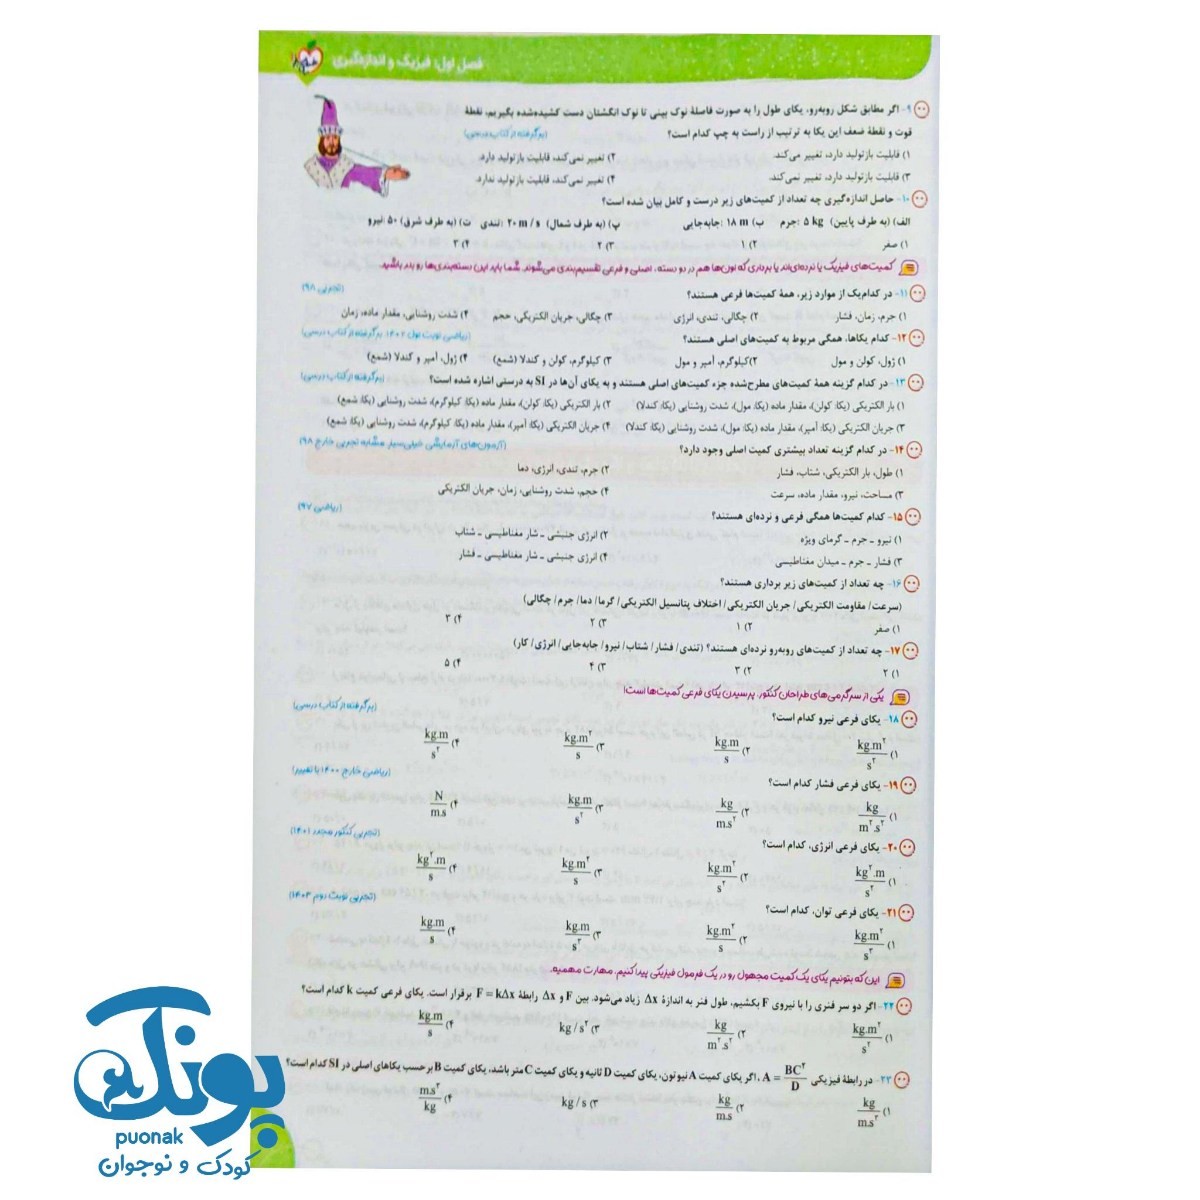 فصل اول: فیزیک و اندازه‌گیری
۹- اگر مطابق شکل روبه‌رو، یکای طول را به صورت فاصلهٔ نوک بینی تا نوک انگشتان دست کشیده‌شده بگیریم، نقطهٔ
قوت و نقطهٔ ضعف این یکا به ترتیب از راست به چپ کدام است؟ (برگرفته از کتاب درسی)
۱) قابلیت بازتولید دارد، تغییر می‌کند. ۲) تغییر نمی‌کند، قابلیت بازتولید دارد.
۳) قابلیت بازتولید دارد، تغییر نمی‌کند. ۴) تغییر نمی‌کند، قابلیت بازتولید ندارد.
۱۰- حاصل اندازه‌گیری چه تعداد از کمیت‌های زیر درست و کامل بیان شده است؟
الف) (به طرف پایین) ۵ kg :جرم ب) ۱۸ m :جابه‌جایی پ) (به طرف شمال) ۲۰ m/s :تندی ت) (به طرف شرق) ۵۰ :نیرو
۱) صفر ۲) ۱ ۳) ۲ ۴) ۳
کمیت‌های فیزیک یا نرده‌ای‌اند یا برداری که اون‌ها هم در دو دسته، اصلی و فرعی تقسیم‌بندی می‌شوند. شما باید این دسته‌بندی‌ها رو بلد باشید.
۱۱- در کدام‌یک از موارد زیر، همهٔ کمیت‌ها فرعی هستند؟ (تجربی ۹۸)
۱) جرم، زمان، فشار ۲) چگالی، تندی، انرژی ۳) چگالی، جریان الکتریکی، حجم ۴) شدت روشنایی، مقدار ماده، زمان
۱۲- کدام یکاها، همگی مربوط به کمیت‌های اصلی هستند؟ (ریاضی نوبت اول ۱۴۰۲، برگرفته از کتاب درسی)
۱) ژول، کولن و مول ۲) کیلوگرم، آمپر و مول ۳) کیلوگرم، کولن و کندلا (شمع) ۴) ژول، آمپر و کندلا (شمع)
۱۳- در کدام گزینه همهٔ کمیت‌های مطرح‌شده جزء کمیت‌های اصلی هستند و به یکای آن‌ها در SI به درستی اشاره شده است؟ (برگرفته از کتاب درسی)
۱) بار الکتریکی (یکا: کولن)، مقدار ماده (یکا: مول)، شدت روشنایی (یکا: کندلا) ۲) بار الکتریکی (یکا: کولن)، مقدار ماده (یکا: کیلوگرم)، شدت روشنایی (یکا: شمع)
۳) جریان الکتریکی (یکا: آمپر)، مقدار ماده (یکا: مول)، شدت روشنایی (یکا: کندلا) ۴) جریان الکتریکی (یکا: آمپر)، مقدار ماده (یکا: کیلوگرم)، شدت روشنایی (یکا: شمع)
۱۴- در کدام گزینه تعداد بیشتری کمیت اصلی وجود دارد؟ (آزمون‌های آزمایشی خیلی‌سبز مشابه تجربی خارج ۹۸)
۱) طول، بار الکتریکی، شتاب، فشار ۲) جرم، تندی، انرژی، دما
۳) مساحت، نیرو، مقدار ماده، سرعت ۴) حجم، شدت روشنایی، زمان، جریان الکتریکی
۱۵- کدام کمیت‌ها همگی فرعی و نرده‌ای هستند؟ (ریاضی ۹۷)
۱) نیرو ـ جرم ـ گرمای ویژه ۲) انرژی جنبشی ـ شار مغناطیسی ـ شتاب
۳) فشار ـ جرم ـ میدان مغناطیسی ۴) انرژی جنبشی ـ شار مغناطیسی ـ فشار
۱۶- چه تعداد از کمیت‌های زیر برداری هستند؟
(سرعت/ مقاومت الکتریکی/ جریان الکتریکی/ اختلاف پتانسیل الکتریکی/ گرما/ دما/ جرم/ چگالی)
۱) صفر ۲) ۱ ۳) ۲ ۴) ۳
۱۷- چه تعداد از کمیت‌های روبه‌رو نرده‌ای هستند؟ (تندی/ فشار/ شتاب/ نیرو/ جابه‌جایی/ انرژی/ کار)
۱) ۲ ۲) ۳ ۳) ۴ ۴) ۵
یکی از سرگرمی‌های طراحان کنکور، پرسیدن یکای فرعی کمیت‌ها است!
۱۸- یکای فرعی نیرو کدام است؟ (برگرفته از کتاب درسی)
۱) kg.m²/s² ۲) kg.m/s ۳) kg.m²/s ۴) kg.m/s²
۱۹- یکای فرعی فشار کدام است؟ (ریاضی خارج ۱۴۰۰ با تغییر)
۱) kg/m².s² ۲) kg/m.s² ۳) kg.m/s² ۴) N/m.s
۲۰- یکای فرعی انرژی، کدام است؟ (تجربی کنکور مجدد ۱۴۰۱)
۱) kg².m/s² ۲) kg.m²/s² ۳) kg.m²/s ۴) kg².m/s
۲۱- یکای فرعی توان، کدام است؟ (تجربی نوبت دوم ۱۴۰۳)
۱) kg.m²/s³ ۲) kg.m²/s ۳) kg.m/s³ ۴) kg.m/s
این که بتونیم یکای یک کمیت مجهول رو در یک فرمول فیزیکی پیدا کنیم، مهارت مهمیه.
۲۲- اگر دو سر فنری را با نیروی F بکشیم، طول فنر به اندازهٔ Δx زیاد می‌شود. بین F و Δx رابطهٔ F = kΔx برقرار است. یکای فرعی کمیت k کدام است؟
۱) kg.m²/s² ۲) kg/m².s² ۳) kg/s² ۴) kg.m/s
۲۳- در رابطهٔ فیزیکی A = BC²/D ، اگر یکای کمیت A نیوتون، یکای کمیت D ثانیه و یکای کمیت C متر باشد، یکای کمیت B بر حسب یکاهای اصلی در SI کدام است؟
۱) kg/m.s² ۲) kg/m.s ۳) kg/s ۴) m.s²/kg
پونک
puonak
کودک و نوجوان